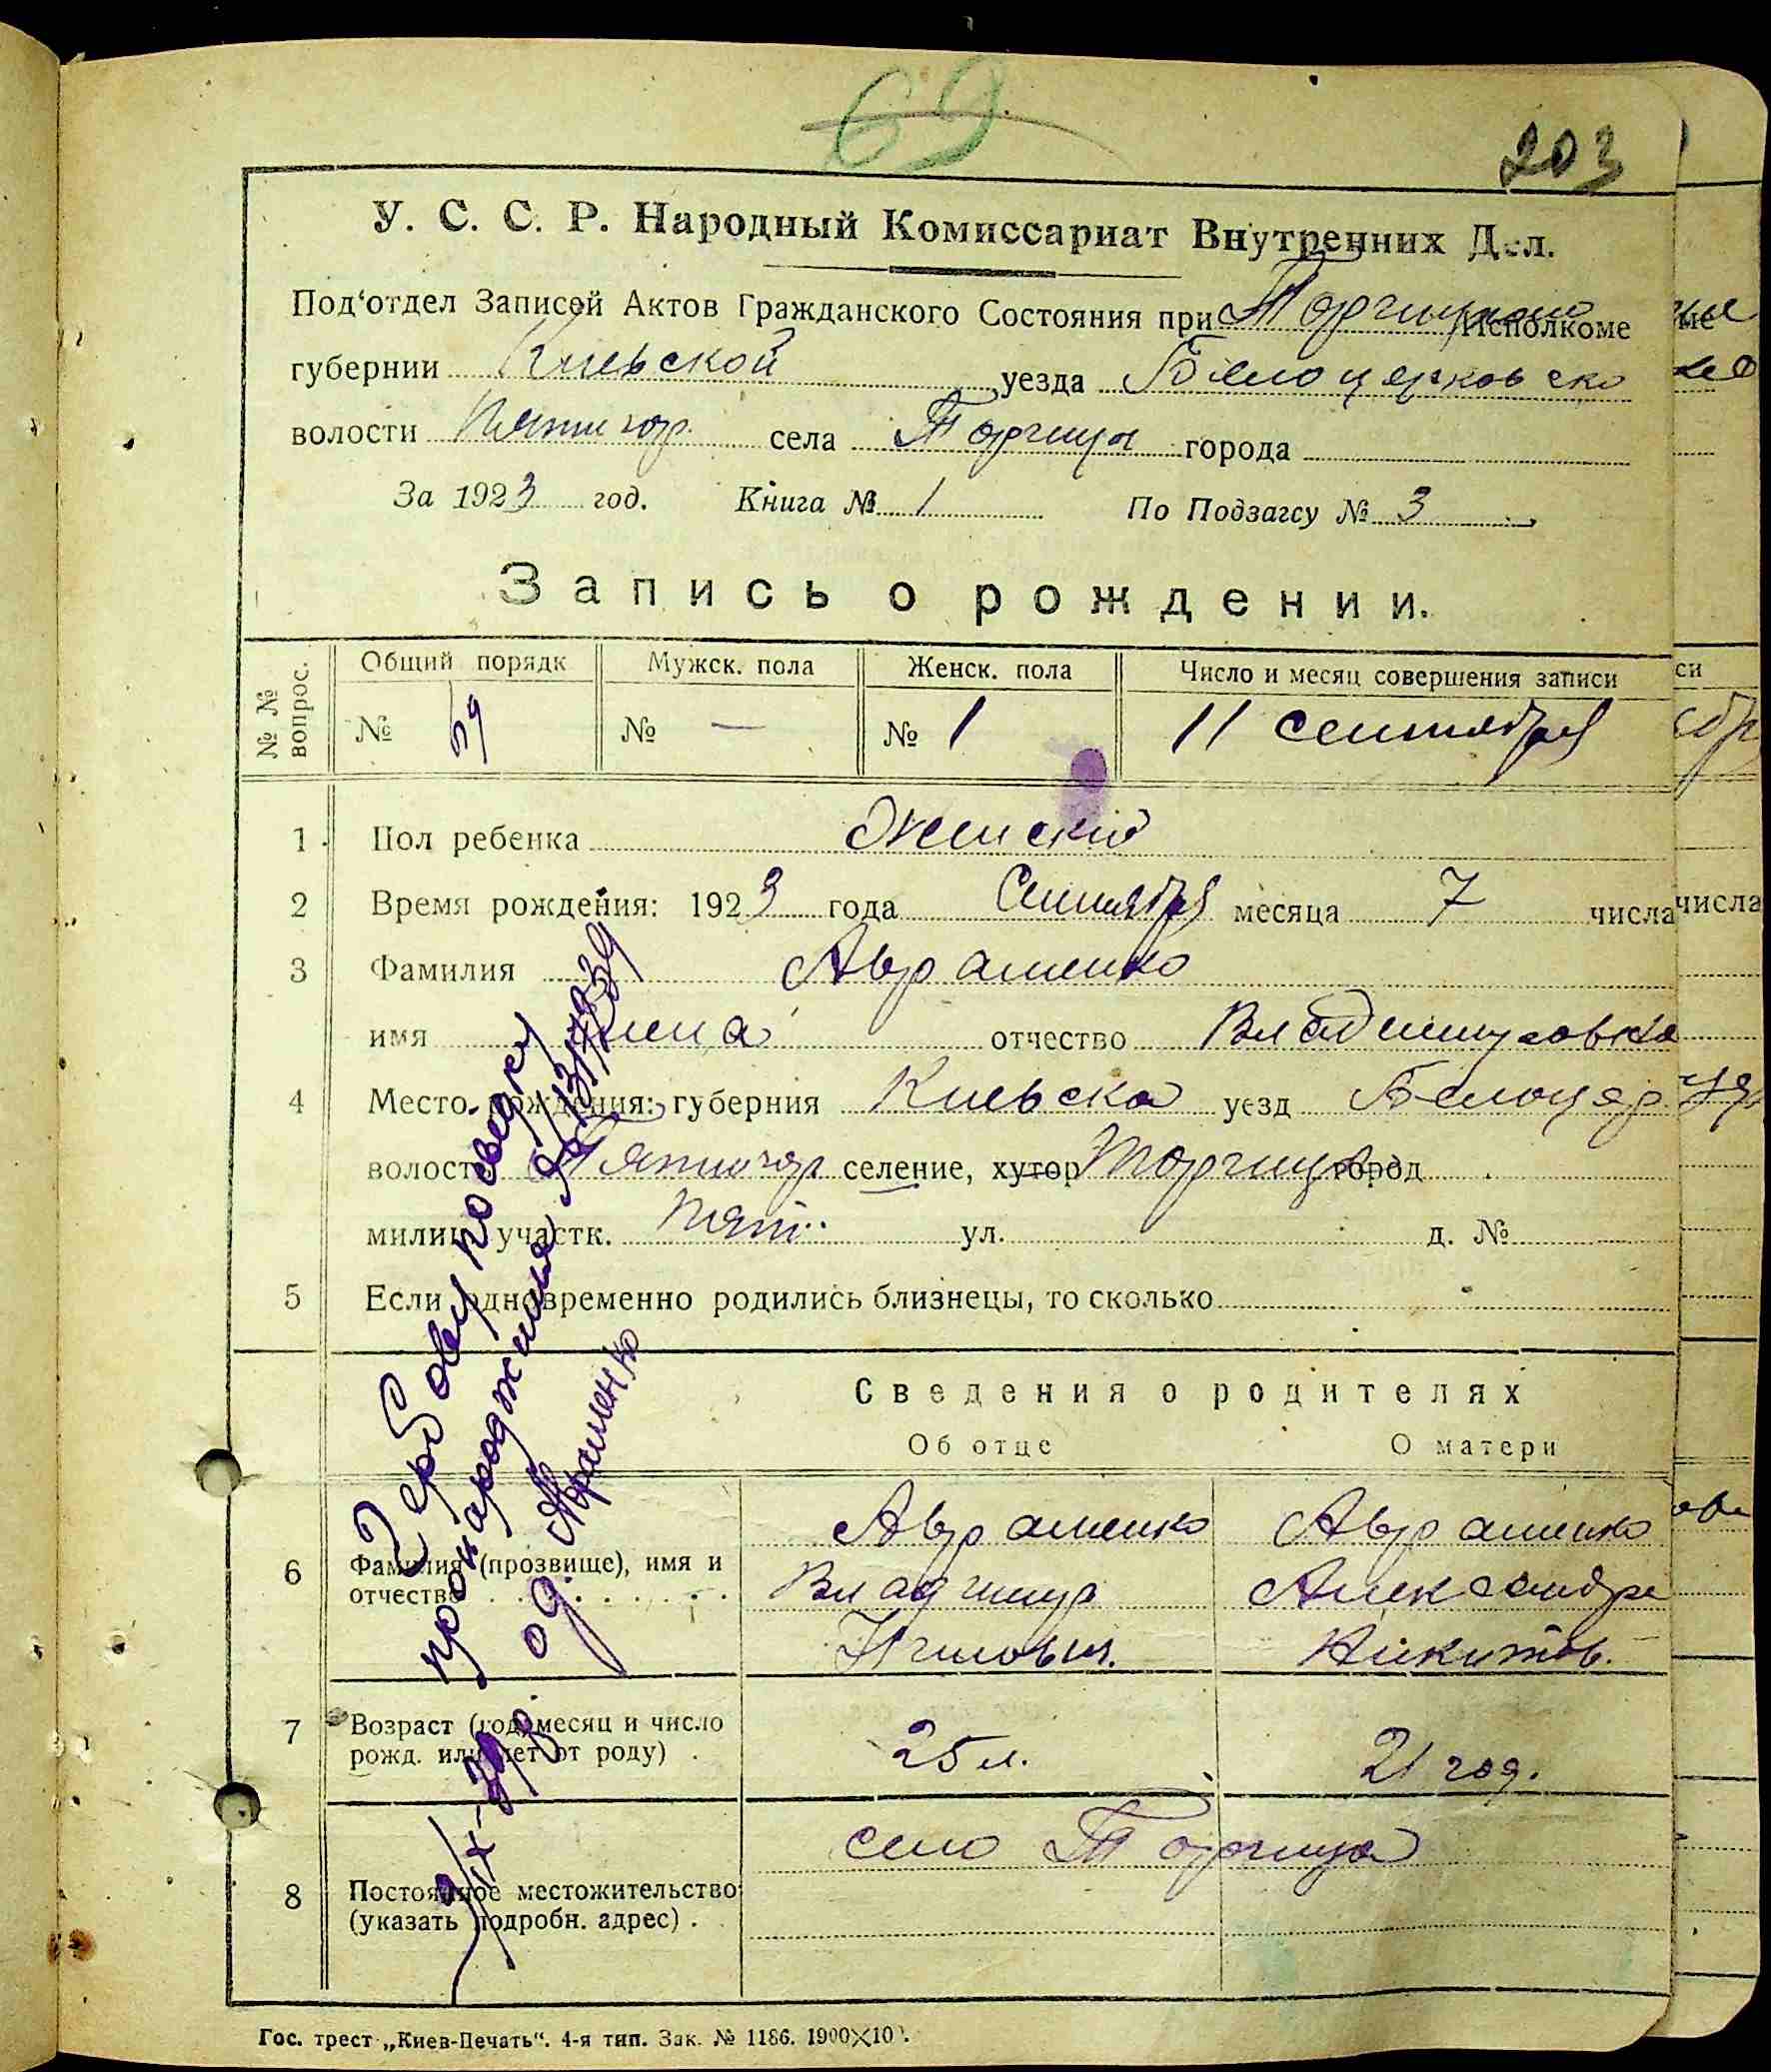 69
203
У. С. С. Р. Народный Комиссариат Внутренних Дел.
Под‘отдел Записей Актов Гражданского Состояния при Торчицком Исполкоме
губернии Киевской уезда Белоцерковско
волости Пятигор. села Торчица города
За 1923 год. Книга № 1 По Подзагсу № 3
Запись о рождении.
№ № вопрос. Общий порядк Мужск. пола Женск. пола Число и месяц совершения записи
№ 59 № — № 1 11 сентября
1 Пол ребенка Женский
2 Время рождения: 1923 года Сентября месяца 7 числа
3 Фамилия Авраменко
имя отчество Владимировна
4 Место рождения: губерния Киевска уезд Белоцер
волость Пятигор селение, хутор Торчица город
милиц. участк. Пят. ул. д. №
5 Если одновременно родились близнецы, то сколько
Сведения о родителях
Об отце О матери
6 Фамилия (прозвище), имя и отчество
Авраменко Авраменко
Владимир Александра
Никитов.
7 Возраст (год, месяц и число рожд. или лет от роду) .
25 л. 21 год.
8 Постоянное местожительство (указать подробн. адрес) .
село Торчица
Гербову посвідку
про народження
од. Авраменко
Гос. трест „Киев-Печать“. 4-я тип. Зак. № 1186. 1900×10